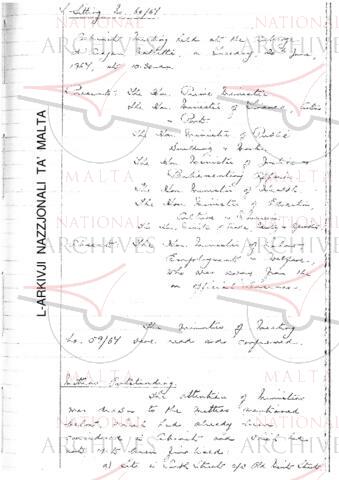 Sitting No. 60/64
Cabinet Meeting held at the Auberge
d'Aragon, Valletta, on Tuesday, June,
1964, at 10.30 a.m.
Present: The Hon. Prime Minister
The Hon. Minister of Finance, Customs
& Port.
The Hon. Minister of Public
Building & Works.
The Hon. Minister of Justice &
Parliamentary Affairs.
The Hon. Minister of Health.
The Hon. Minister of Education,
Culture & Tourism.
The Hon. Minister of Trade, Industry & Agriculture
The Hon. Minister of Labour,
Employment & Welfare,
who was away from the
on official
The Minutes of Meeting
No. 59/64 were read and confirmed.
Matters Outstanding.
The attention of Ministers
was drawn to the matters mentioned
below, which had already been
considered in Cabinet and which had
not yet been finalised:
a) Site in South Street c/o Old Mint Street
L-ARKIVJI NAZZJONALI TA' MALTA
NATIONAL
ARCHIVES
MALTA